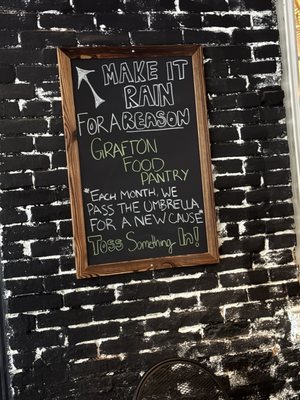 MAKE IT
RAIN
FOR A REASON
GRAFTON
FOOD
PANTRY
*EACH MONTH, WE
PASS THE UMBRELLA
FOR A NEW CAUSE
TOSS Something IN!